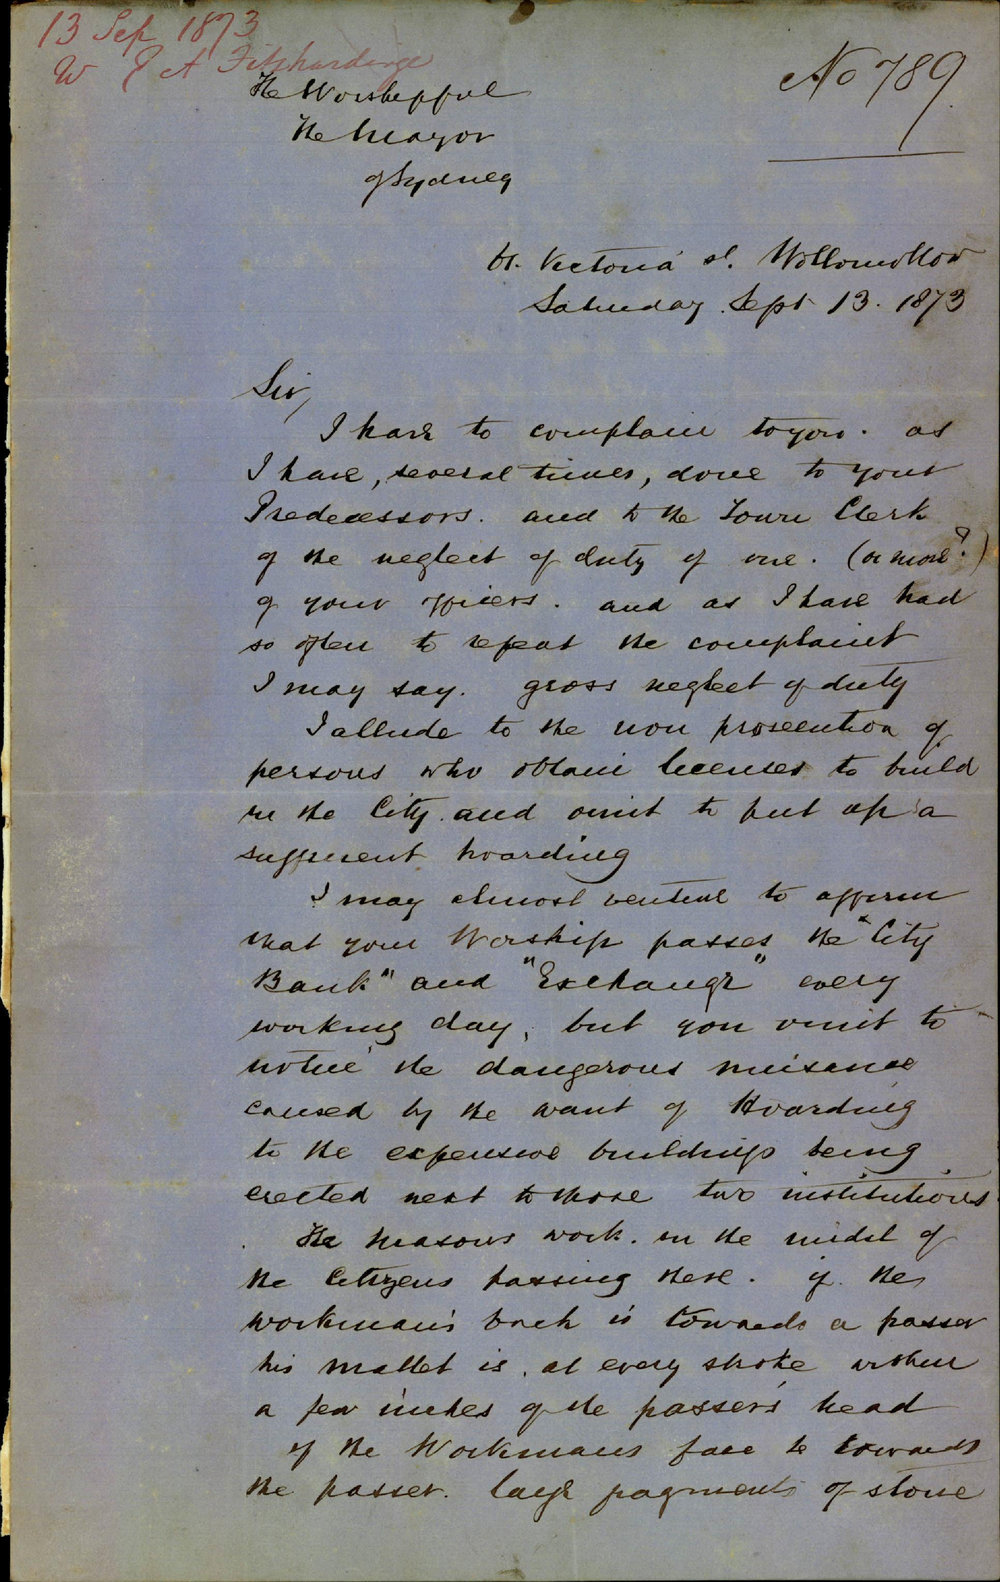 13 Sep 1873
W G A Fitzhardinge
No 789
The Worshipful
The Mayor
of Sydney
Victoria st. Wollomolloo
Saturday Sept 13. 1873
Sir,
I have to complain to you. as
I have, several times, done to your
Predecessors. and to the Town Clerk
of the neglect of duty of one. (or more?)
of your officers. and as I have had
so often to repeat the complaint
I may say. gross neglect of duty
I allude to the non prosecution of
persons who obtain licenses to build
in the City and omit to put up a
sufficient hoarding
I may almost venture to affirm
that your Worship passes the "City
Bank" and "Exchange" every
working day, but you omit to
notice the dangerous nuisance
caused by the want of Hoarding
to the expensive buildings being
erected next to those two institutions
The Masons work. in the midst of
the Citizens passing there. if the
workman's back is towards a passer
his mallet is, at every stroke within
a few inches of the passer's head
if the Workmans face be towards
the passer. large fragments of stone